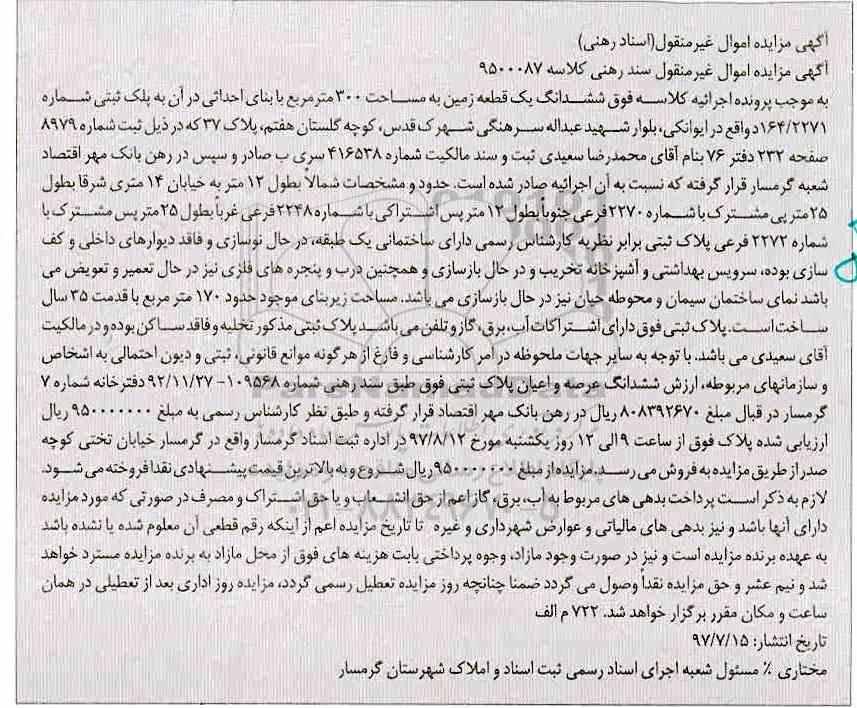 آگهی مزایده اموال غیرمنقول(اسناد رهنی)
آگهی مزایده اموال غیرمنقول سند رهنی کلاسه ۹۵۰۰۰۸۷
به موجب پرونده اجرائیه کلاسه فوق ششدانگ یک قطعه زمین به مساحت ۳۰۰ مترمربع با بنای احداثی در آن به پلک ثبتی شماره
۱۶۴/۲۲۷۱دواقع در ایوانکی، بلوار شهید عبداله سرهنگی شهرک قدس، کوچه گلستان هفتم، پلاک ۳۷ که در ذیل ثبت شماره ۸۹۷۹
صفحه ۲۳۲ دفتر ۷۶ بنام آقای محمدرضا سعیدی ثبت و سند مالکیت شماره ۴۱۶۵۳۸ سری ب صادر و سپس در رهن بانک مهر اقتصاد
شعبه گرمسار قرار گرفته که نسبت به آن اجرائیه صادر شده است. حدود و مشخصات شمالاً بطول ۱۲ متر به خیابان ۱۴ متری شرقا بطول
۲۵متر پی مشترک با شماره ۲۲۷۰فرعی جنوبا بطول ۱۲ متر پس اشتراکی با شماره ۲۲۴۸فرعی غرباً بطول ۲۵متر پس مشترک با
شماره ۲۲۷۲ فرعی پلاک ثبتی برابر نظریه کارشناس رسمی دارای ساختمانی یک طبقه، در حال نوسازی و فاقد دیوارهای داخلی و کف
سازی بوده، سرویس بهداشتی و آشپزخانه تخریب و در حال بازسازی و همچنین درب و پنجره های فلزی نیز در حال تعمیر و تعویض می
باشد نمای ساختمان سیمان و محوطه حیان نیز در حال بازسازی می باشد. مساحت زیربنای موجود حدود ۱۷۰ متر مربع با قدمت ۳۵ سال
ساخت است. پلاک ثبتی فوق دارای اشتراکات آب، برق، گاز و تلفن می باشد پلاک ثبتی مذکور تخلیه و فاقد ساکن بوده و در مالکیت
آقای سعیدی می باشد. با توجه به سایر جهات ملحوظه در امر کارشناسی و فارغ از هرگونه موانع قانونی، ثبتی و دیون احتمالی به اشخاص
و سازمانهای مربوطه، ارزش ششدانگ عرصه و اعیان پلاک ثبتی فوق طبق سند رهنی شماره ۱۰۹۵۶۸- ۹۲/۱۱/۲۷ دفترخانه شماره ۷
گرمسار در قبال مبلغ ۸۰۸۳۹۲۶۷۰ ریال در رهن بانک مهر اقتصاد قرار گرفته و طبق نظر کارشناس رسمی به مبلغ ۹۵۰۰۰۰۰۰۰ ریال
ارزیابی شده پلاک فوق از ساعت ۹ الی ۱۲ روز یکشنبه مورخ ۹۷/۸/۱۲ در اداره ثبت اسناد گرمسار واقع در گرمسار خیابان تختی کوچه
صدر از طریق مزایده به فروش می رسد. مزایده از مبلغ ۹۵۰۰۰۰۰۰۰ریال شروع و به بالاترین قیمت پیشنهادی نقدا فروخته می شود.
لازم به ذکر است پرداخت بدهی های مربوط به آب، برق، گاز اعم از حق انشعاب و یا حق اشتراک و مصرف در صورتی که مورد مزایده
دارای آنها باشد و نیز بدهی های مالیاتی و عوارض شهرداری و غیره تا تاریخ مزایده اعم از اینکه رقم قطعی آن معلوم شده یا نشده باشد
به عهده برنده مزایده است و نیز در صورت وجود مازاد، وجوه پرداختی بابت هزینه های فوق از محل مازاد به برنده مزایده مسترد خواهد
شد و نیم عشر و حق مزایده نقداً وصول می گردد ضمنا چنانچه روز مزایده تعطیل رسمی گردد، مزایده روز اداری بعد از تعطیلی در همان
ساعت و مکان مقرر برگزار خواهد شد. ۷۲۲ م الف
تاریخ انتشار: ۹۷/۷/۱۵
مختاری ٪ مسئول شعبه اجرای اسناد رسمی ثبت اسناد و املاک شهرستان گرمسار